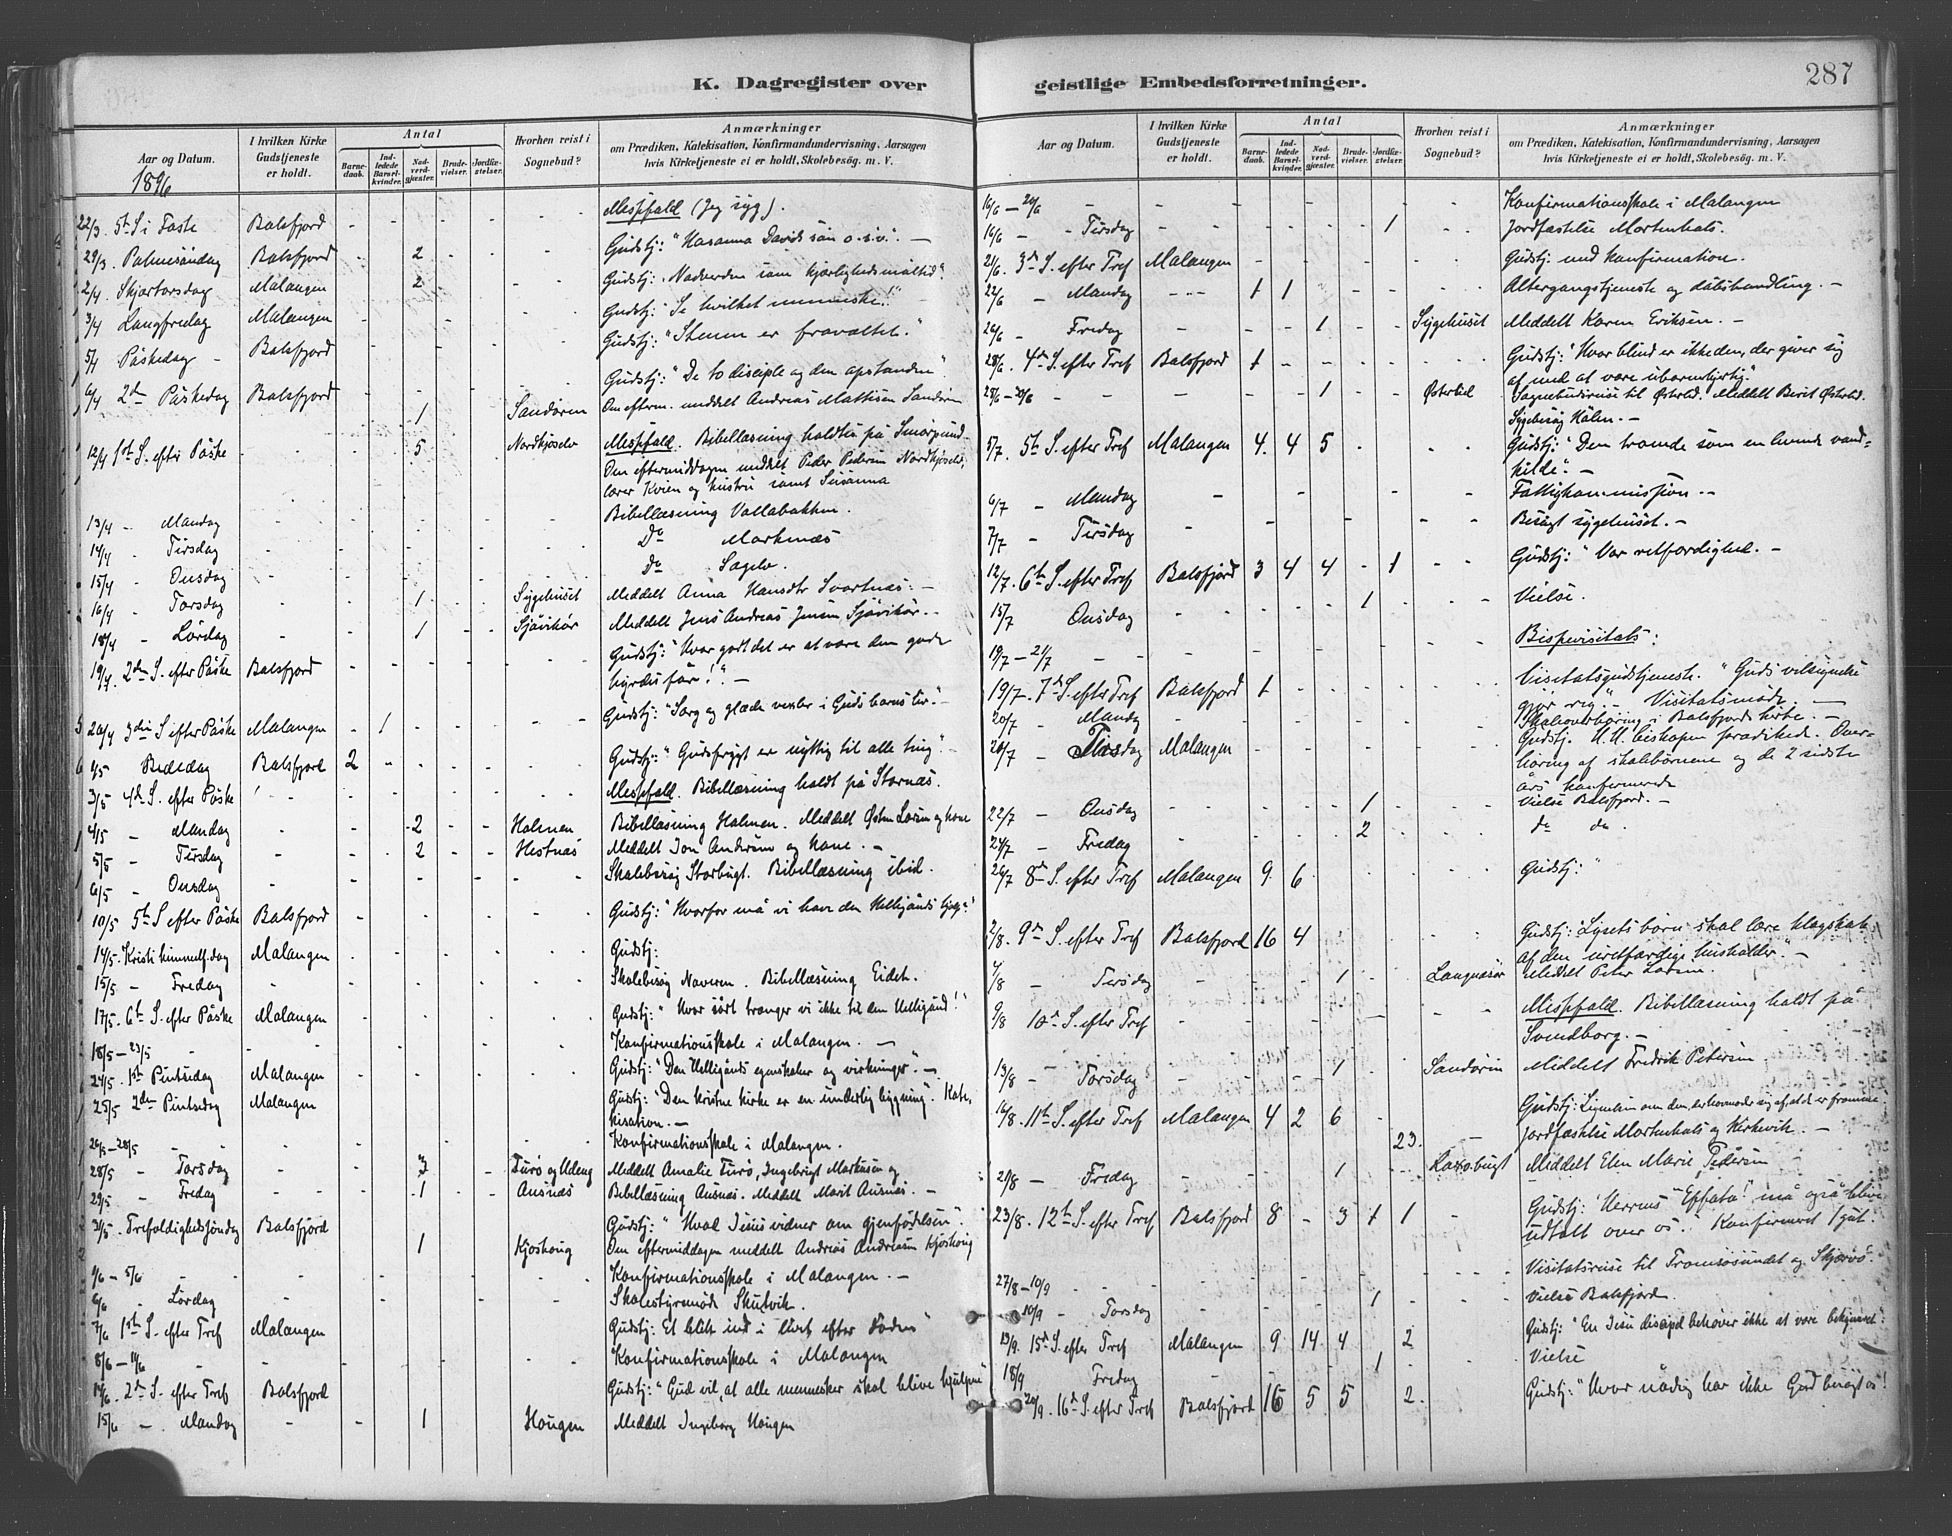 K. Dagregister over
Aar og Datum. I hvilken Kirke Gudstjeneste er holdt. Antal Barnedaab. Indledede Barselkvinder. Nadverdgjæster. Brudevielser. Jordfæstelser. Hvorhen reist i Sognebud? Anmærkninger om Prædiken, Katekisation, Konfirmandundervisning, Aarsagen hvis Kirketjeneste ei er holdt, Skolebesøg. m. V.
1896
22/3 5te S. i Faste Balsfjord - - - - - - Messfald (Jeg syg).
29/3. Palmesöndag Balsfjord - - 2 - - - Gudstj: "Hosanna Davids sön o.s.v." -
2/4. Skjærtorsdag Malangen - - 2 - - - Gudstj: "Nadverden som kjærlighedsmåltid".
3/4 Langfredag Malangen - - - - Gudstj: "Se hvilket menneske!"
5/4 Påskedag - Balsfjord - - - Gudstj: "Stenen er fravæltet."
6/4 2den Påskedag Balsfjord - - Gudstj: "De to disciple og den opstandne".
1 Sandören Om efterm. meddelt Andreas Mathisen Sandören
12/4 1ste S. efter Påske - - 5 - Nordkjoselv Messfald. Bibellæsning holdtes på
Om eftermiddagen meddelt Peder Pedersen Nordkjoselv,
lærer Kvien og hustru samt Susanna
13/4 - Mandag - - - Bibellæsning Vollabakken.
14/4 - Tirsdag - - - Do Markenæs
15/4 - Onsdag - - - Do Sagelv.
16/4 - Torsdag - - 1 - - Sygehuset Meddelt Anna Hansdtr Svartnæs. -
18/4 - Lördag - - 1 - - Sjåvikör Meddelt Jens Andreas Jensen Sjåvikör. -
19/4. 2den S. efter Påske Balsfjord - - - - Gudstj: "Hvor godt det er at være den gode
hyrdes får!". -
26/4 3die S. efter Påske Malangen - 1 - - - Gudstj: "Sorg og glæde vexler i Guds barns liv. -
1/5 Bededag Balsfjord 2 - - - - Gudstj: "Gudsfrygt er nyttig til alle ting". -
3/5 4de S. efter Påske - - - Messfald. Bibellæsning holdt på Stornæs.
4/5 - Mandag - - 2 - - Holmen Bibellæsning Holmen. Meddelt Østen Larsen og kone
5/5 - Tirsdag - - 2 - - Hestnæs Meddelt Jon Andersen og kone. -
6/5 - Onsdag - - - Skolebesög Storbugt. Bibellæsning ibid.
10/5 5te S. efter Påske Balsfjord - - - Gudstj: "Hvorfor må vi have den Helligånds hjælp?"
14/5. Kristi himmelf.dag Malangen - - - Gudstj:
15/5 - Fredag - - - Skolebesög Naveren. Bibellæsning Eidet.
17/5. 6te S. efter Påske Malangen - - - Gudstj: "Hvor sårt trænger vi ikke til den Helligånd!"
18/5 - 23/5 - - - Konfirmationsskole i Malangen. -
24/5. 1ste Pintsedag Malangen - - - Gudstj: "Den Helligånds egenskaber og virkninger". -
25/5 2den Pintsedag Malangen - - - Gudstj: "Den kristne kirke er en underlig bygning". Kate-
kisation. -
26/5 - 28/5 - - - Konfirmationsskole i Malangen.
28/5 - Torsdag - - 3 - Tusö og Meddelt Amalie Tusö, Ingebrigt Martinsen og
29/5 - Fredag - - 1 - - Ausnæs Bibellæsning Ausnæs. Meddelt Marit Ausnæs. -
31/5. Trefoldighedssöndag Balsfjord - - - Gudstj: "Hvad Jesus vidner om gjenfödelsen".
1 Kjoshoug Om eftermiddagen meddelt Andreas Andreasen Kjoshoug
1/6 - 5/6 - - - Konfirmationsskole i Malangen. -
6/6 - Lördag - Skolestyremöde Skutvik.
7/6 1ste S. efter Tref Malangen Gudstj: Et blik ind i livet efter döden"
8/6 - 11/6 - - - Konfirmationsskole i Malangen
14/6. 2den S. efter Tref Balsfjord - - - Gudstj: "Gud vil, at alle mennesker skal blive hjulpne"
15/6 - Mandag - - 1 - - Hougen Meddelt Ingeborg Hougen
geistlige Embedsforretninger. 287
Aar og Datum. I hvilken Kirke Gudstjeneste er holdt. Antal Barnedaab. Indledede Barselkvinder. Nadverdgjæster. Brudevielser. Jordfæstelser. Hvorhen reist i Sognebud? Anmærkninger om Prædiken, Katekisation, Konfirmandundervisning, Aarsagen hvis Kirketjeneste ei er holdt, Skolebesög. m. V.
16/6 - 20/6 - - - Konfirmationsskole i Malangen
16/6 - - Tirsdag - - - 1 - - Jordfæstelse Mortenhals.
21/6. 3die S. efter Tref Malangen - - - Gudstj: med konfirmation.
22/6 - Mandag - - 1 1 - - - Altergangstjeneste og dåbshandling. -
26/6 - Fredag - - - 1 - - Sygehuset Meddelt Karen Eriksen. -
28/6. 4de S. efter Tref Balsfjord 1 - - - Gudstj: "Hvor blind er ikke den, der giver sig
af med at være ubarmhjertig."
28/6 - - - - 1 - - Østerlid Sognebudsreise til Østerlid. Meddelt Berit Østerlid.
Skolebesög
5/7. 5te S. efter Tref Malangen 4. 4 5 - - - Gudstj: "Den fromde som en levende vand-
kilde". -
6/7 - Mandag - - - Fattigkommission. -
7/7 - Tirsdag - - - Besögt sygehuset. -
12/7. 6te S. efter Tref Balsfjord 3 4 4 - 1 - - Gudstj: "Vor retfærdighed. -
15/7 Onsdag - - - 1 - - Vielse.
19/7 - 21/7 - - - Bispevisitats:
19/7. 7de S. efter Tref Balsfjord 1 - - - Visitatsgudstjeneste. "Guds velsignelse
gjör rig". - Visitatsmöde. -
20/7 - Mandag - - - Skoleoverhöring i Balsfjords kirke. -
21/7 - Tirsdag Malangen - - - Gudstj. H.H. biskopen prædikede. Over-
höring af skolebörnene og de 2 sidste
års konfirmerede
22/7 - Onsdag - - - 1 - - Vielse Balsfjord. -
24/7 - Fredag - - - 2 - - do do.
26/7 8de S. efter Tref Malangen 9. 6 - - - Gudstj: "
2/8. 9de S. efter Tref Balsfjord 16 4 - - - Gudstj: Lysets börn skal lære klogskab
af den uretfærdige husholder". -
4/8 - Tirsdag - - - 1 - - Langnæsör Meddelt Peter Larsen.
9/8 10de S. efter Tref - - - Messfald. Bibellæsning holdt på
Svendborg. -
13/8 - Torsdag - - - 1 - - Sandören Meddelt Fredrik Petersen
16/8. 11te S. efter Tref Malangen 4 2 6 - Gudstj: Lignelsen om den, der hovmoder sig af, at de er fromme.
23. - Jordfæstelse Mortenhals og Kirkevik. -
21/8 - Fredag - - - 1 - - Laxobugt Meddelt Elen Marie Pedersen
23/8. 12te S. efter Tref Balsfjord 8 - 3 1 1 - - Gudstj: Herrens "Effata!" må også blive
udtalt over os". Konfirmeret 1 gut.
27/8 - 10/9 - - - Visitatsreise til Tromsösundet og Skjærvö.
10/9 - Torsdag - - - 1 - - Vielse Balsfjord.
13/9. 15de S. efter Tref Malangen 9 14 4 - 2 Gudstj: "En Jesu discipel behöver ikke at være bekymret".
18/9 Fredag - - - 1 - - Vielse
20/9. 16de S. efter Tref Balsfjord 16 5 5 2. Gudstj: "Hvor nådig har ikke Gud besögt os!